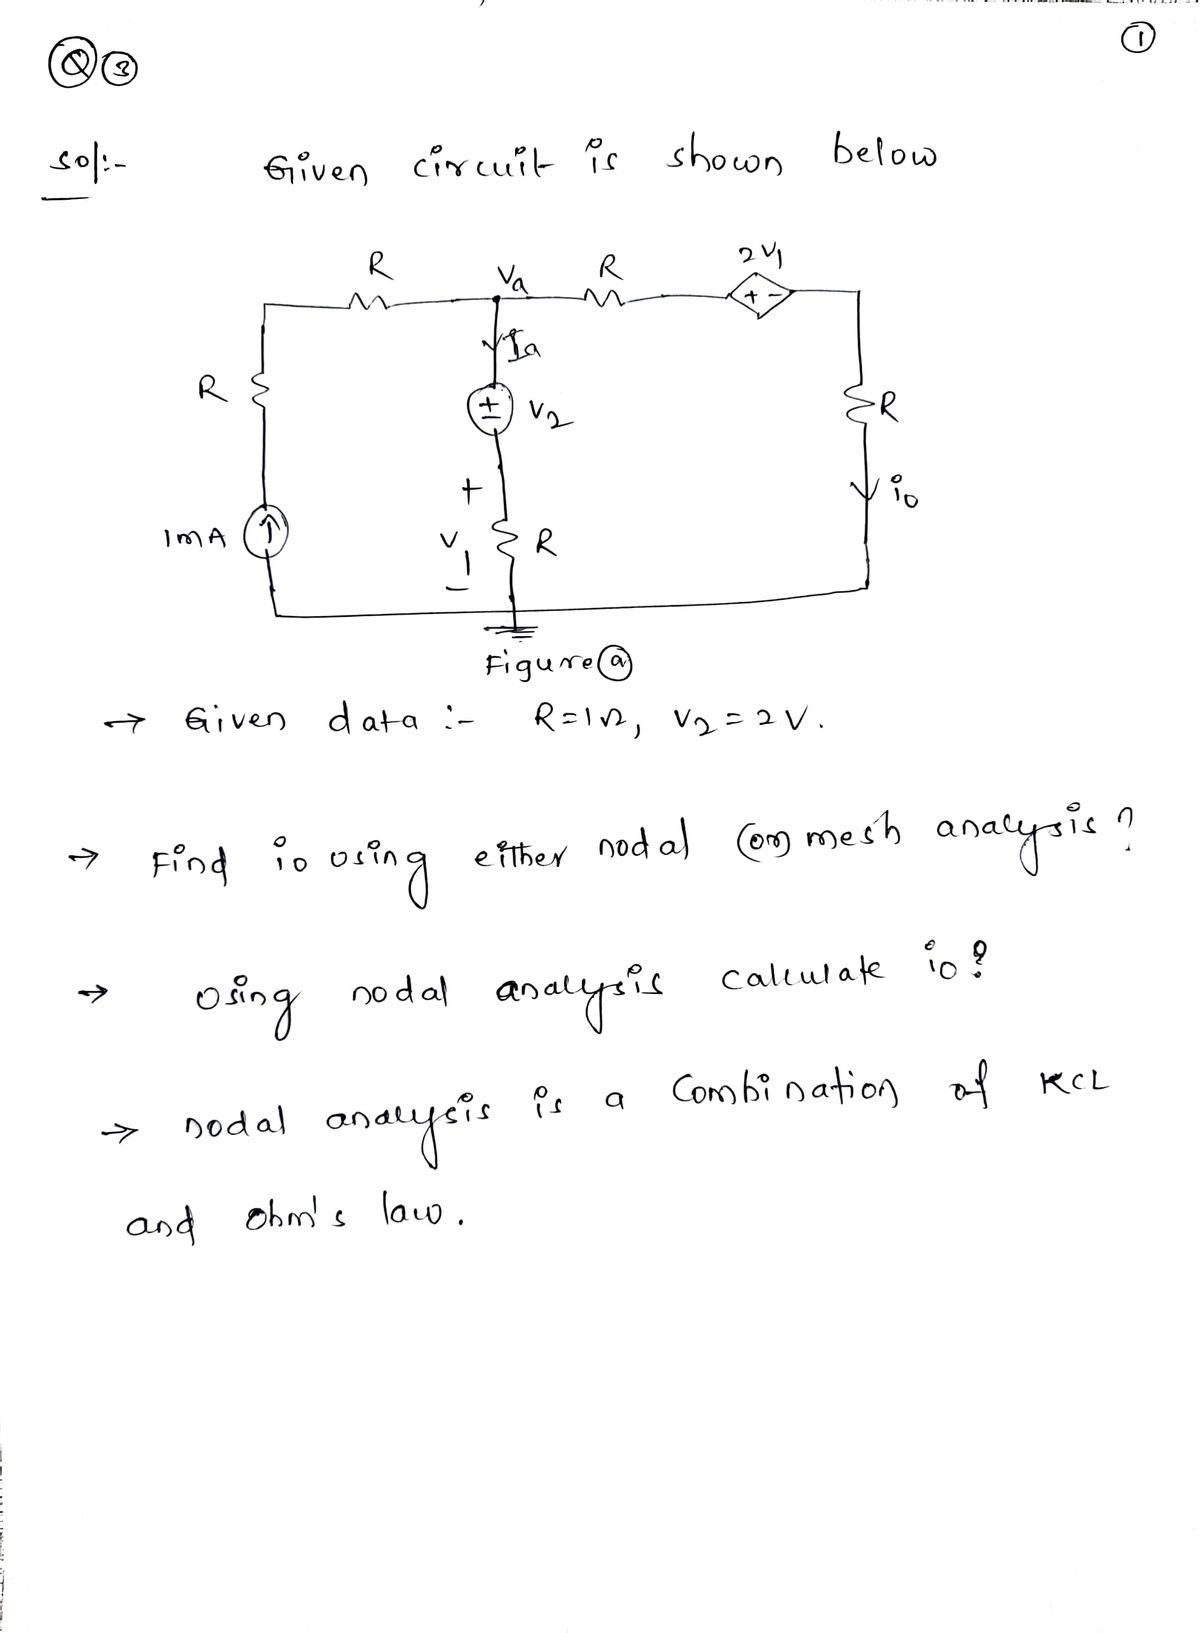 ①
Q ③
Sol:-
Given circuit is shown below
R
Va
R
2V1
+ -
Ia
R
+
V2
R
+
i0
1mA
V1
R
-
Figure ⓐ
→ Given data :- R=1Ω, V2=2V.
→ Find i0 using either nodal (or) mesh analysis?
→ Using nodal analysis calculate i0?
→ nodal analysis is a Combination of KCL
and ohm's law.